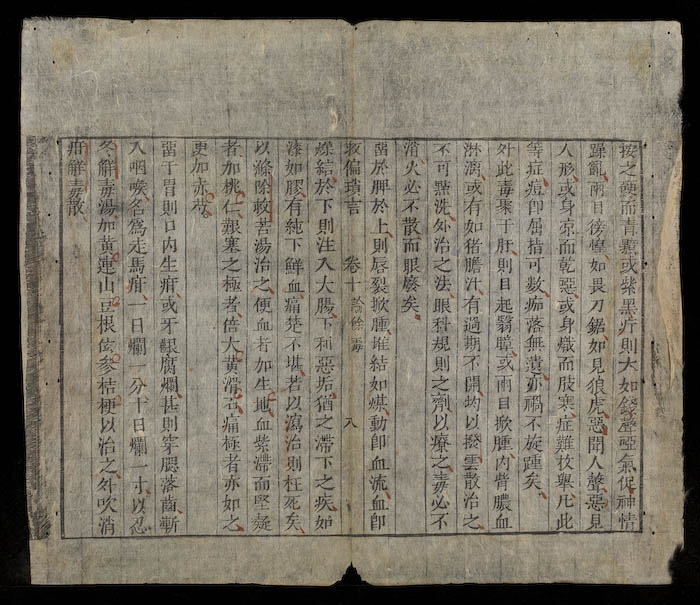 按之硬而青癍或紫黑斤則大如錢聲啞氣促神情
躁亂兩目徬惶如畏刀鋸如見狼虎惡聞人聲惡見
人形或身凉而乾惡或身熾而肢寒症難枚舉凡此
等症痘卽屈指可數痂落無遺亦禍不旋踵矣
外此毒聚于肝則目起翳障或兩目掀腫内眥膿血
淋漓或有如猪膽汁有過期不開均以撥雲散治之
不可點洗外治之法眼科規則之劑以療之毒必不
消火必不散而眼廢矣
留於脾於上則唇裂掀腫堆結如煤動卽血流血卽
救偏瑣言 卷十 論餘毒 八
燥結於下則注入大腸下利惡垢猶之滯下之疾如
漆如膠有純下鮮血痛楚不堪若以瀉治則枉死矣
以滌除救苦湯治之便血者加生地血紫滯而堅凝
者加桃仁艱塞之極者倍大黄滑石痛極者亦如之
更加赤芍
留于胃則口内生疳或牙齦腐爛甚則穿腮落齒斬
入咽喉名爲走馬疳一日爛一分十日爛一寸以忍
冬解毒湯加黄連山豆根佐參桔梗以治之外吹消
疳解毒散